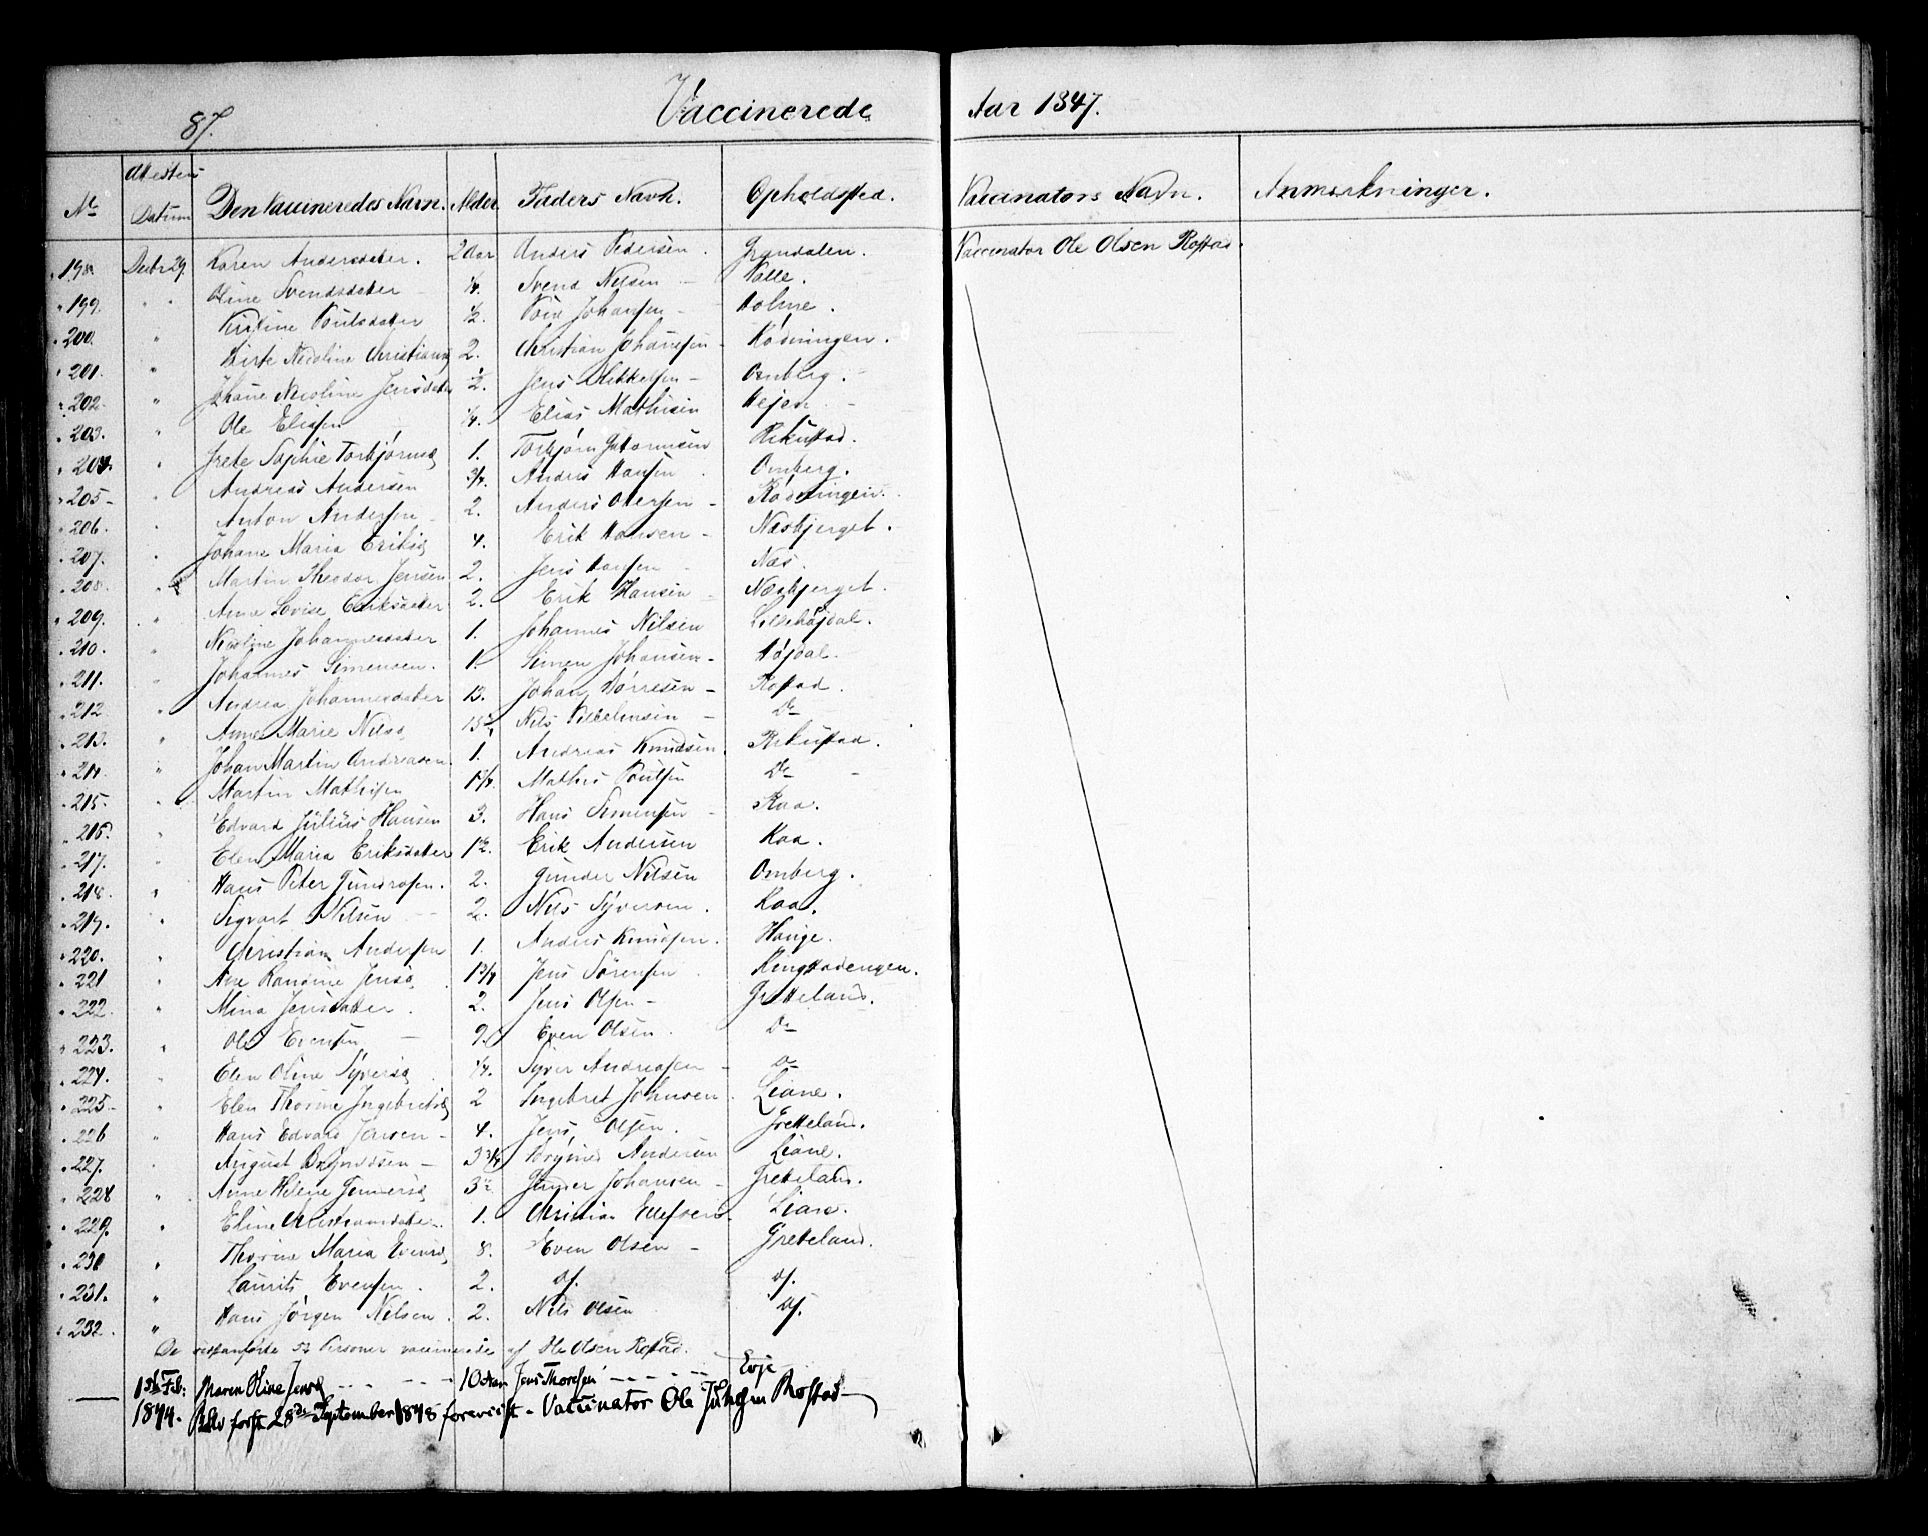 87.
Vaccinerede Aar 1847.
No Attestens Datum Den Vaccineredes Navn. Alder. Faders Navn. Opholdssted. Vaccinators Navn. Anmærkninger.
198 Decbr 29. Karen Andersdatter. 2 Aar Anders Pedersen. Grøndalen. Vaccinator Ole Olsen Rostad.
" 199. " " Oline Svendsdatter 1/4. Svend Nilsen - Nalle.
" 200. " Poulsdatter 1/2. Johansen - Holme.
" 201. " Nicoline Christiansd 2. Christian Johansen - Rødningen.
" 202. " Johane Nicoline Jensdatter 1/2. Jens Mikkelsen - Omberg. -
" 203. " Ole Eliasen 1/4. Elias Mathisen Hejen -
" 204. " Grete Sophie Torbjørnsd 1. Torbjørn Guttormsen Rikustad.
" 205 - " Andreas Andersen 3/4. Anders Hansen. Omberg.
" 206. " Anton Andersen - 2. Anders Olersen - Rødningen.
" 207. " Johane Maria Eriksd 4. Erik Hansen - Næsbjerget.
" 208. " Martin Theodor Jensen 2. Jens Hansen - Næs.
" 209. " Anne Lovise Eriksdatter 2. Erik Hansen - Næsbjerget.
" 210. " Nicoline Johannesdatter 1. Johannes Nilsen Lillehøjdal.
" 211. " Johannes Simensen. 1. Simen Johansen - Højdal.
" 212 " Andrea Johannesdatter 13. Johan Tørresen - Rostad.
" 213. " Anne Marie Nilsd 15 Nils - Do -
" 214 " Johan Martin Andreasen 1. Andreas Knudsen. Rikustad.
" 215. " Martin Mathisen 1 3/4. Mathis Poulsen Do - -
" 216. " Edvard Julius Hansen 3. Hans Simensen - Kaa.
" 217. " Elen Maria Eriksdatter 1 1/2. Erik Andersen Kaa.
" 218. " Hans Peter Gundersen. 2. Gunder Nilsen Omberg.
" 219. " Sigvart Nilsen - - 2. Nils Syversen. Kaa.
" 220. " Christian Andersen 1. Anders Knudsen. Hauge.
" 221 " Ane Randine Jensd 1 3/4 Jens Sørensen. Ringstadengen.
" 222. " Mina Jensdatter. 2. Jens Olsen - Gretteland.
" 223. " Ole Evensen - 9. Even Olsen. Do -
" 224. " Elen Oline Syversd 1/4. Syver Andreasen - Do
" 225 - " Elen Thorine Ingebretsd 2 Ingebret Johnsen. Liane.
" 226 " Hans Edvard Jensen - 4. Jens Olsen. Gretteland.
" 227. " August Brynildsen - 3 3/4 Andersen Liane.
" 228 " Anne Helene Gundersd 3 1/2 Gunder Johansen - Greteland.
" 229. " Eline Christiansdatter. 1. Christian Ellefsen - Liane.
" 230 " Thorine Maria Evensd 8. Even Olsen - Greteland.
" 231. " Laurits Evensen. 2. do. do.
" 232. " Hans Jørgen Nilsen. 2. Nils Olsen do.
De ovenanførte 52 Personer vaccinerede af Ole Olsen Rostad.
13de Feb: 1874. Maren Oline Jensd - - - - 10 Aar Jens Thoresen - - - - - Evje
Blev først 28de September 1878 foreviist - Vaccinator Ole Rostad -